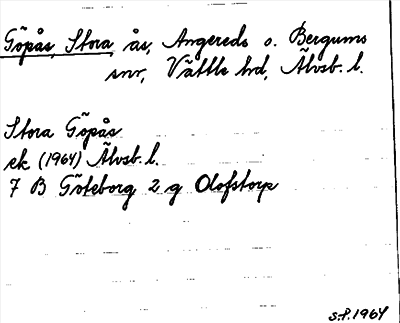 Göpås, Stora, ås, Angereds o. Bergums
snr, Vättle hd, Älvsb. l.
Stora Göpås
ek (1964) Älvsb. l.
7 B Göteborg 2 g Olofstorp
S.P. 1964